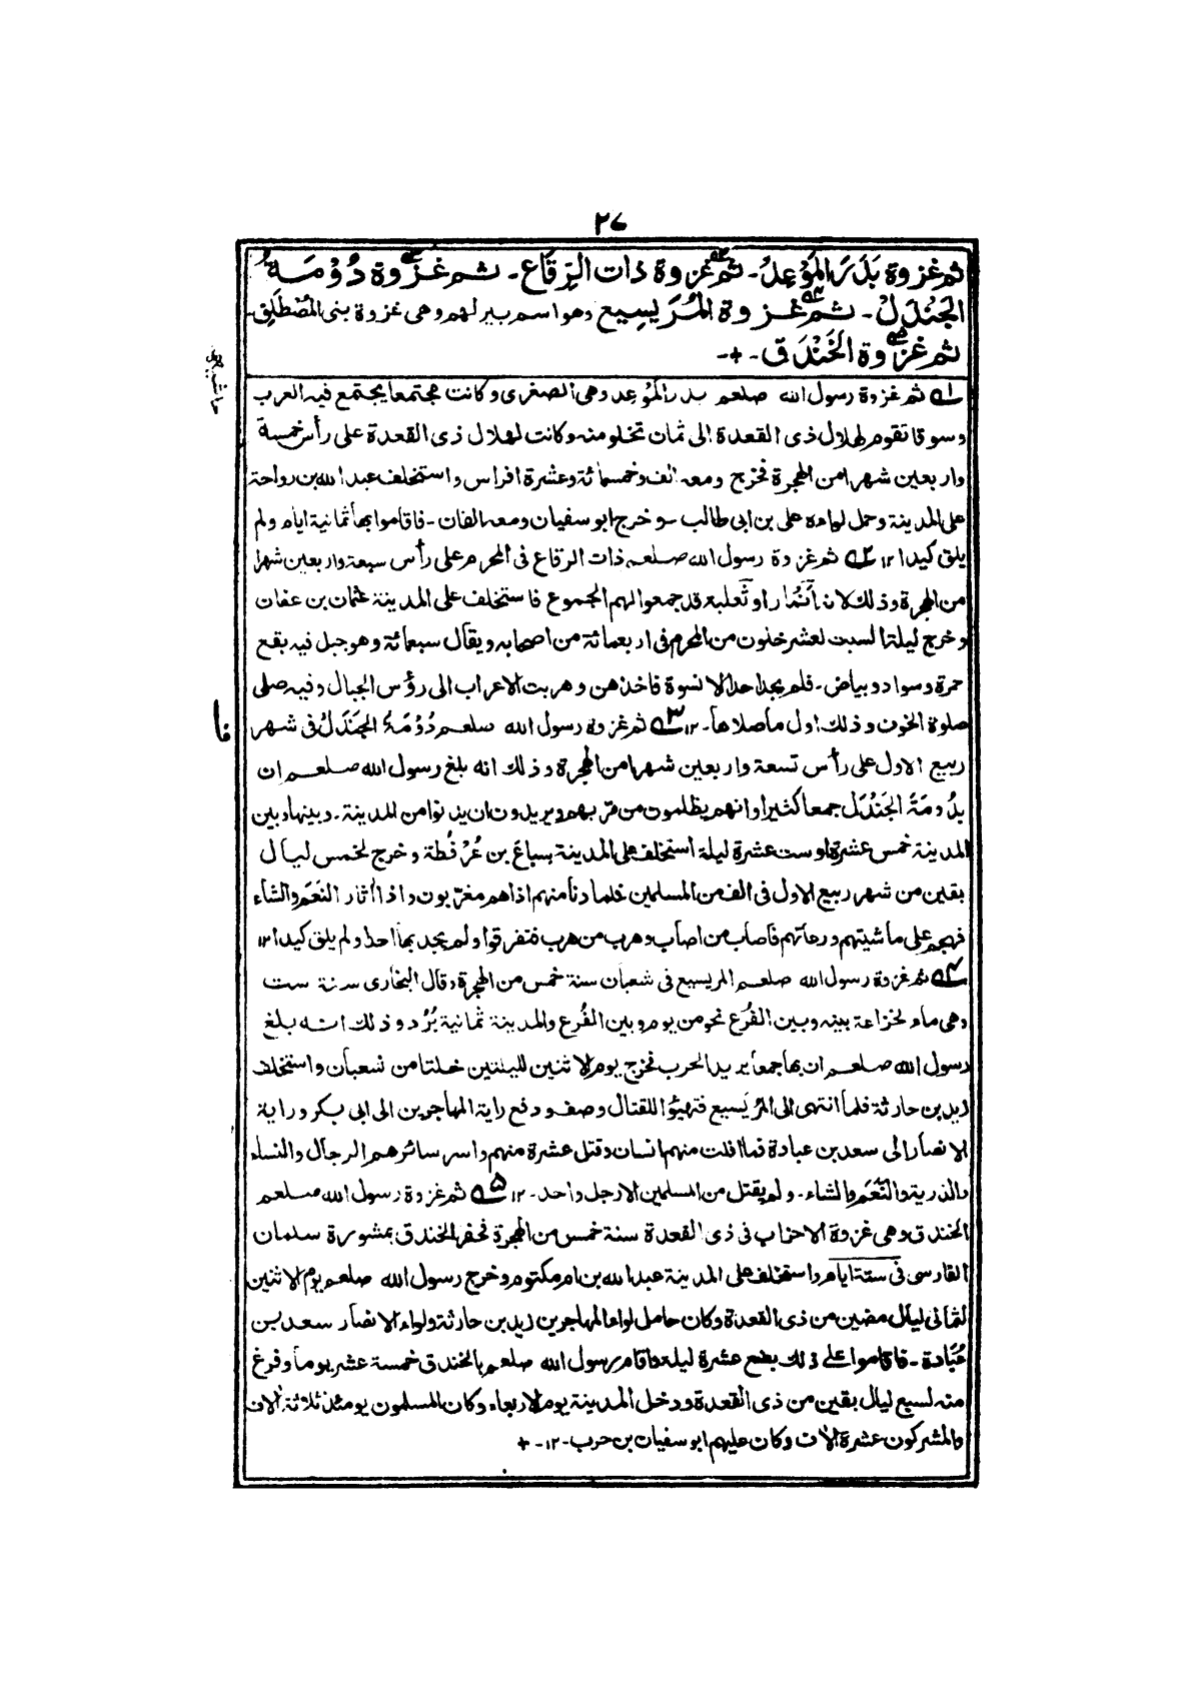 ٢٧
ثم غزوة بَدَرَ المَوْعِدُ - ثم غزوة ذات الرِقَاع - ثم غزوة دُوْمَةُ
الجَنْدَلْ - ثم غزوة المُرَيسِيع وهو اسم بير لهم وهى غزوة بنى المُصْطَلِق
ثم غزوة الخَنْدَق -+-
حاشيه
له ثم غزوة رسول الله صلعم بدر المَوْعِد وهى الصغرى وكانت مجتمعا يجتمع فيه العرب
وسوقا تقوم لهلال ذى القعدة الى ثمان تخلو منه وكانت لهلال ذى القعدة على رأس خمسة
واربعين شهرا من الهجرة فخرج ومعه الف وخمسمائة وعشرة افراس واستخلف عبد الله بن رواحة
على المدينة وحمل لواءه على بن ابى طالب - وخرج ابو سفيان ومعه الفان - فاقاموا بها ثمانية ايام ولم
يلق كيدا ١٢ ٢ه ثم غزوة رسول الله صلعم ذات الرقاع فى المحرم على رأس سبعة واربعين شهرا
من الهجرة وذلك لان انمار او ثعلبة قد جمعوا لهم الجموع فاستخلف على المدينة عثمان بن عفان
وخرج ليلة السبت لعشر خلون من المحرم فى اربعمائة من اصحابه ويقال سبعمائة وهو جبل فيه بقع
حمرة وسواد وبياض - فلم يجد احدا الا نسوة فاخذهن وهربت الاعراب الى رؤس الجبال وفيه صلى
صلوة الخوف وذلك اول ما صلاها - ١٢ ٣ه ثم غزوة رسول الله صلعم دُوْمَةُ الجَنْدَلُ فى شهر
فا
ربيع الاول على رأس تسعة واربعين شهرا من الهجرة وذلك انه بلغ رسول الله صلعم ان
بدُومَةُ الجَنْدَل جمعا كثيرا وانهم يظلمون من مر بهم ويريدون ان يدنوا من المدينة - وبينها وبين
المدينة خمس عشرة او ست عشرة ليلة استخلف على المدينة سباع بن عُرْفُطة وخرج لخمس ليال
بقين من شهر ربيع الاول فى الف من المسلمين فلما دنا منهم اذا هم مغربون واذا اثار النَعَم والشاء
فهجم على ماشيتهم ورعاتهم فاصاب من اصاب وهرب من هرب فتفرقوا ولم يجد بها احدا ولم يلق كيدا ١٢
٤ه ثم غزوة رسول الله صلعم المريسيع فى شعبان سنة خمس من الهجرة وقال البخارى سنة ست
وهى ماء لخزاعة بينه وبين الفُرْع نحو من يوم وبين الفُرع والمدينة ثمانية بُرُد وذلك انه بلغ
رسول الله صلعم ان بها جمعا يريد الحرب فخرج يوم الاثنين لليلتين خلتا من شعبان واستخلف
زيد بن حارثة فلما انتهى الى المُرَيسيع فتهيؤا للقتال وصفو ودفع راية المهاجرين الى ابى بكر وراية
الانصار الى سعد بن عبادة فما افلت منهم انسان وقتل عشرة منهم واسر سائرهم الرجال والنساء
والذرية والنَّعَم والشاء - ولم يقتل من المسلمين الا رجل واحد - ١٢ ٥ه ثم غزوة رسول الله صلعم
الخندق وهى غزوة الاحزاب فى ذى القعدة سنة خمس من الهجرة فحفر الخندق بمشورة سلمان
الفارسى فى ستة ايام واستخلف على المدينة عبد الله بن ام مكتوم وخرج رسول الله صلعم يوم الاثنين
لثمانى ليال مضين من ذى القعدة وكان حامل لواء المهاجرين زيد بن حارثة ولواء الانصار سعد بن
عُبَادة - فاقاموا على ذلك بضع عشرة ليلة واقام رسول الله صلعم بالخندق خمسة عشر يوما وفرغ
منه لسبع ليال بقين من ذى القعدة ودخل المدينة يوم الاربعاء وكان المسلمون يومئذ ثلاثة الاف
والمشركون عشرة الاف وكان عليهم ابو سفيان بن حرب - ١٢ - +